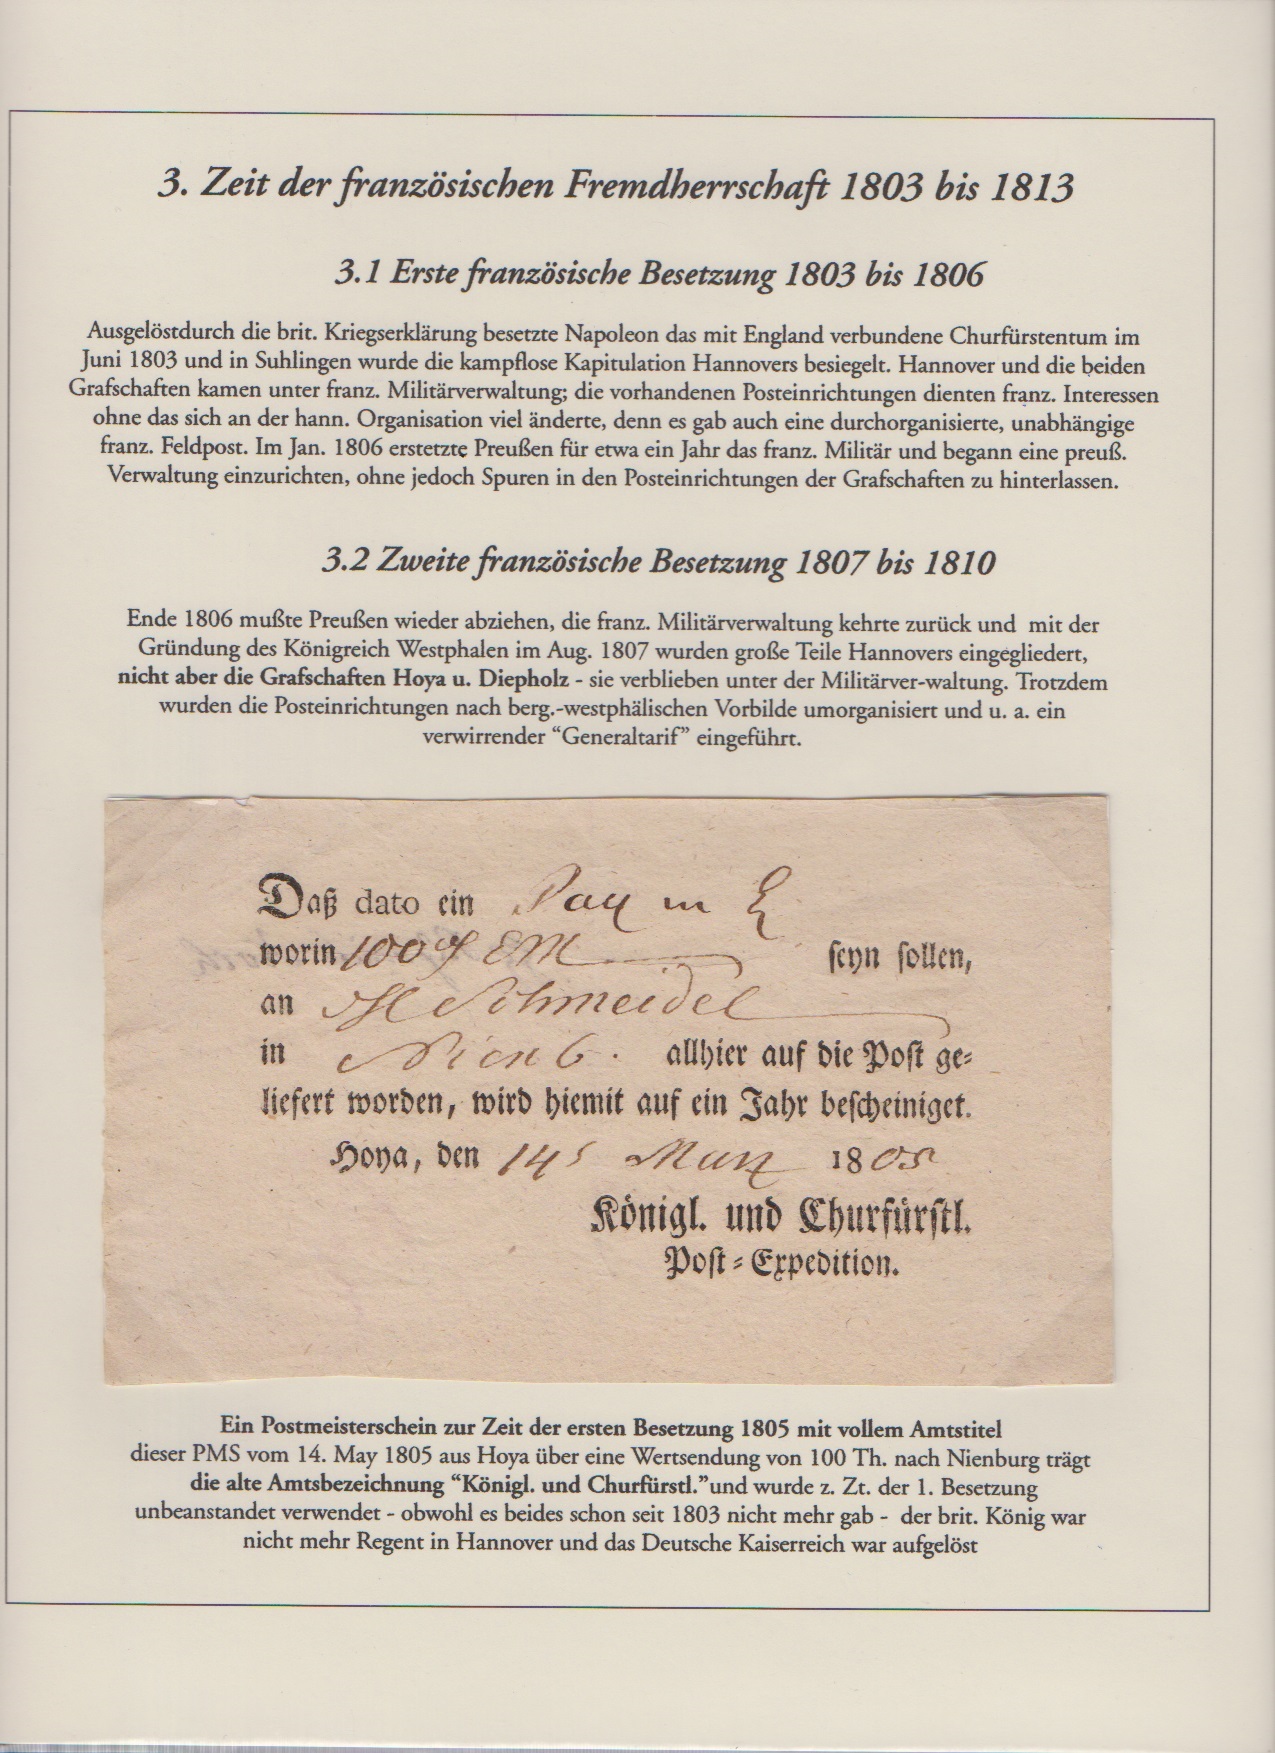 3. Zeit der französischen Fremdherrschaft 1803 bis 1813
3.1 Erste französische Besetzung 1803 bis 1806
Ausgelöstdurch die brit. Kriegserklärung besetzte Napoleon das mit England verbundene Churfürstentum im
Juni 1803 und in Suhlingen wurde die kampflose Kapitulation Hannovers besiegelt. Hannover und die beiden
Grafschaften kamen unter franz. Militärverwaltung; die vorhandenen Posteinrichtungen dienten franz. Interessen
ohne das sich an der hann. Organisation viel änderte, denn es gab auch eine durchorganisierte, unabhängige
franz. Feldpost. Im Jan. 1806 erstetzte Preußen für etwa ein Jahr das franz. Militär und begann eine preuß.
Verwaltung einzurichten, ohne jedoch Spuren in den Posteinrichtungen der Grafschaften zu hinterlassen.
3.2 Zweite französische Besetzung 1807 bis 1810
Ende 1806 mußte Preußen wieder abziehen, die franz. Militärverwaltung kehrte zurück und mit der
Gründung des Königreich Westphalen im Aug. 1807 wurden große Teile Hannovers eingegliedert,
nicht aber die Grafschaften Hoya u. Diepholz - sie verblieben unter der Militärver-waltung. Trotzdem
wurden die Posteinrichtungen nach berg.-westphälischen Vorbilde umorganisiert und u. a. ein
verwirrender “Generaltarif” eingeführt.
Daß dato ein
worin 100 seyn sollen,
an Schmeidel
in Nienb. allhier auf die Post ge-
liefert worden, wird hiemit auf ein Jahr bescheiniget.
Hoya, den 14 1805
Königl. und Churfürstl.
Post-Expedition.
Ein Postmeisterschein zur Zeit der ersten Besetzung 1805 mit vollem Amtstitel
dieser PMS vom 14. May 1805 aus Hoya über eine Wertsendung von 100 Th. nach Nienburg trägt
die alte Amtsbezeichnung “Königl. und Churfürstl.”und wurde z. Zt. der 1. Besetzung
unbeanstandet verwendet - obwohl es beides schon seit 1803 nicht mehr gab - der brit. König war
nicht mehr Regent in Hannover und das Deutsche Kaiserreich war aufgelöst